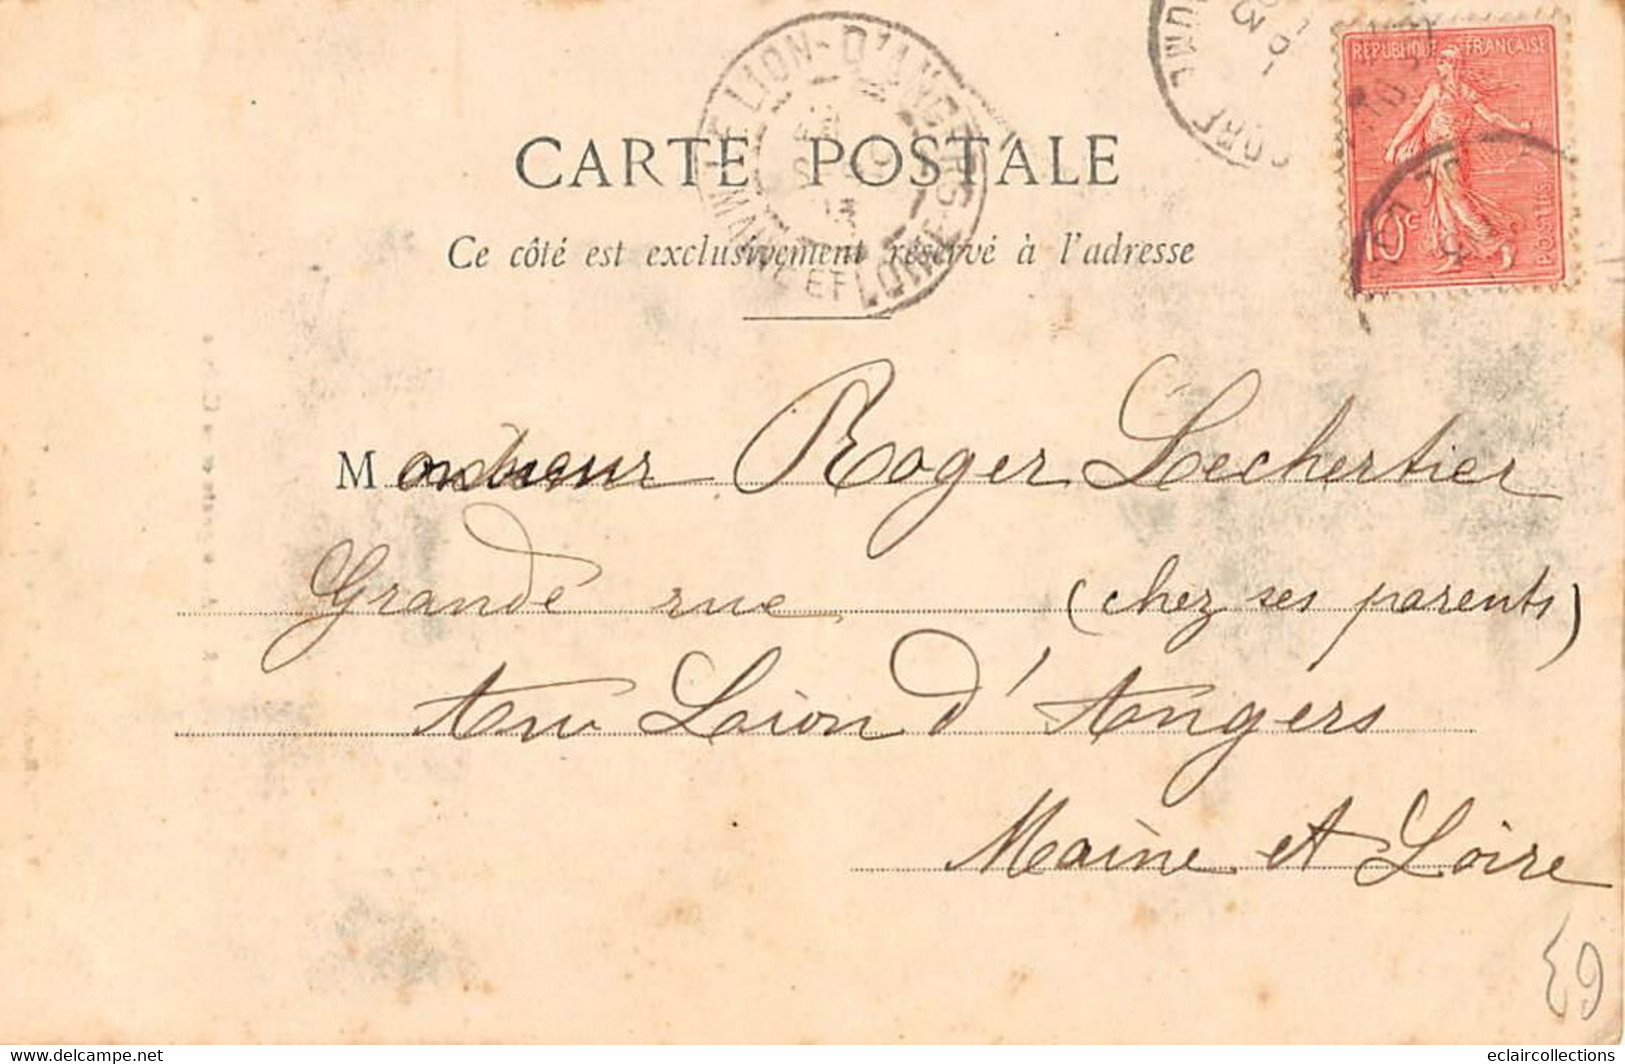 RÉPUBLIQUE FRANÇAISE
10c POSTES
LE LION-D'ANGERS
MAINE ET LOIRE
CARTE POSTALE
Ce côté est exclusivement réservé à l'adresse
Monsieur Roger Lechertier
Grande rue (chez ses parents)
Au Lion d'Angers
Maine et Loire
www.delcampe.net
eclaircollections